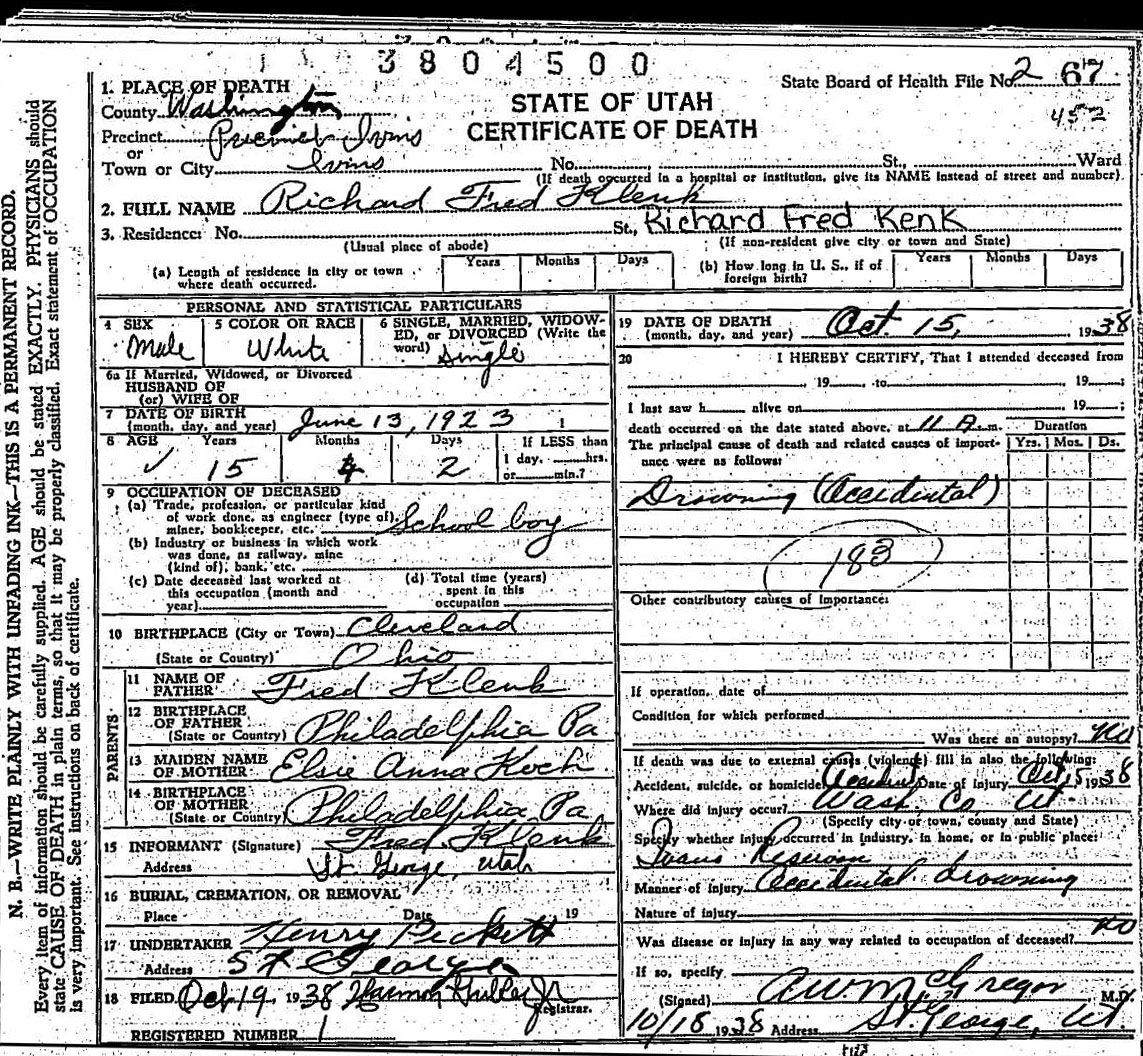 3 8 0 4 5 0 0
State Board of Health File No. 2 67
452
STATE OF UTAH
CERTIFICATE OF DEATH
1. PLACE OF DEATH
County Washington
Precinct Precinct Ivins
or
Town or City Ivins No. St., Ward
(If death occurred in a hospital or institution, give its NAME instead of street and number).
2. FULL NAME Richard Fred Klenk
3. Residence: No. St., Richard Fred Kenk
(Usual place of abode) (If non-resident give city or town and State)
(a) Length of residence in city or town where death occurred. Years Months Days
(b) How long in U. S., if of foreign birth? Years Months Days
PERSONAL AND STATISTICAL PARTICULARS
4 SEX Male
5 COLOR OR RACE White
6 SINGLE, MARRIED, WIDOWED, OR DIVORCED (Write the word) Single
6a If Married, Widowed, or Divorced
HUSBAND OF
(or) WIFE OF
7 DATE OF BIRTH
(month, day, and year) June 13, 1923
8 AGE Years Months Days If LESS than
15 4 2 1 day, hrs.
or min.?
9 OCCUPATION OF DECEASED
(a) Trade, profession, or particular kind
of work done, as engineer (type of),
miner, bookkeeper, etc. School boy
(b) Industry or business in which work
was done, as railway, mine
(kind of), bank, etc.
(c) Date deceased last worked at
this occupation (month and
year)
(d) Total time (years)
spent in this
occupation
10 BIRTHPLACE (City or Town) Cleveland
(State or Country) Ohio
PARENTS
11 NAME OF
FATHER Fred Klenk
12 BIRTHPLACE
OF FATHER
(State or Country) Philadelphia Pa
13 MAIDEN NAME
OF MOTHER Elsie Anna Koch
14 BIRTHPLACE
OF MOTHER
(State or Country) Philadelphia Pa
15 INFORMANT (Signature) Fred Klenk
Address St. George, Utah
16 BURIAL, CREMATION, OR REMOVAL
Place Date 19
17 UNDERTAKER Henry Pickett
Address St George
18 FILED Oct 19, 1938
Registrar.
REGISTERED NUMBER 1
19 DATE OF DEATH
(month, day, and year) Oct. 15, 1938
20 I HEREBY CERTIFY, That I attended deceased from
, 19 , to 19 ;
I last saw h alive on 19 ;
death occurred on the date stated above, at 11 A. m.
Duration
The principal cause of death and related causes of importance were as follows: Yrs. Mos. Ds.
Drowning (Accidental)
183
Other contributory causes of importance:
If operation, date of
Condition for which performed
Was there an autopsy? no
If death was due to external causes (violence) fill in also the following:
Accident, suicide, or homicide Accident Date of injury Oct 15 1938
Where did injury occur? Wash. Co. Ut.
(Specify city or town, county and State)
Specify whether injury occurred in industry, in home, or in public place:
Ivans Reservoir
Manner of injury Accidental drowning
Nature of injury
Was disease or injury in any way related to occupation of deceased? no
If so, specify
(Signed) A W McGregor M.D.
10/18 1938 Address St. George, Ut.
N. B.—WRITE PLAINLY WITH UNFADING INK—THIS IS A PERMANENT RECORD.
Every item of information should be carefully supplied. AGE should be stated EXACTLY. PHYSICIANS should
state CAUSE OF DEATH in plain terms, so that it may be properly classified. Exact statement of OCCUPATION
is very important. See instructions on back of certificate.